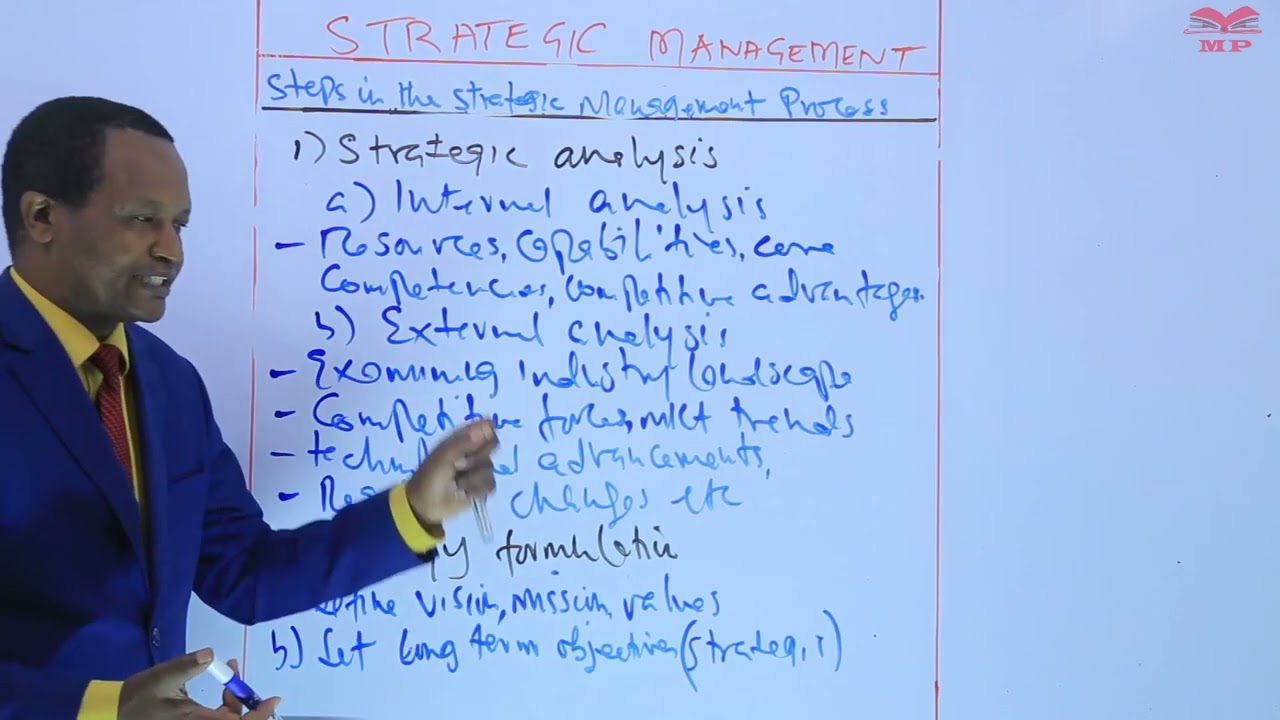 MP
STRATEGIC MANAGEMENT
Steps in the Strategic Management Process
1) Strategic analysis
a) Internal analysis
- Resources, capabilities, core
competencies, competitive advantages.
b) External analysis
- Examining industry landscape
- Competitive forces, mkt trends
- advancements,
- changes etc
formulation
vision, mission, values
b) Set long term objectives (strategic)